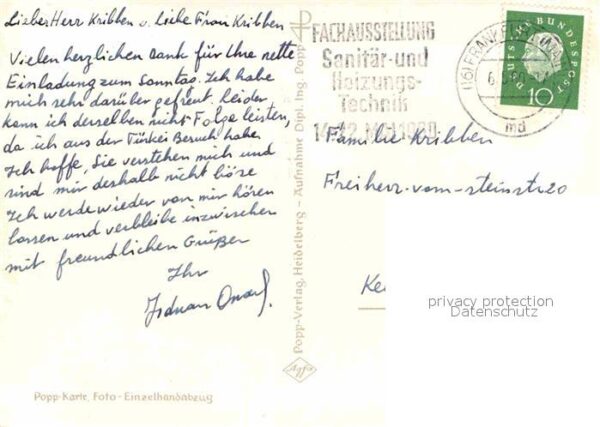 Lieber Herr Kribben u. Liebe Frau Kribben
Vielen herzlichen Dank für Ihre nette
Einladung zum Sonntag. Ich habe
mich sehr darüber gefreut. Leider
kann ich derselben nicht Folge leisten,
da ich aus der Türkei Besuch habe.
Ich hoffe, Sie verstehen mich und
sind mir deshalb nicht böse
Ich werde wieder von mir hören
lassen und verbleibe inzwischen
mit freundlichen Grüßen
Ihr
Popp-Karte, Foto-Einzelhandabzug
Popp-Verlag, Heidelberg - Aufnahme Dipl. Ing. Popp
Agfa
FACHAUSSTELLUNG
Sanitär-und
Heizungs-
Technik
14-22. MAI 1960
(16) FRANKFURT
md
DEUTSCHE BUNDESPOST
10
Familie Kribben
Freiherr-vom-steinstr 20
Ke
privacy protection
Datenschutz